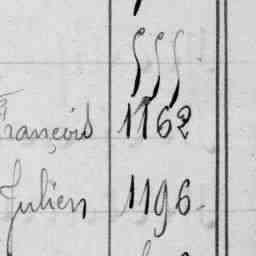 François 1162
Julien 1196